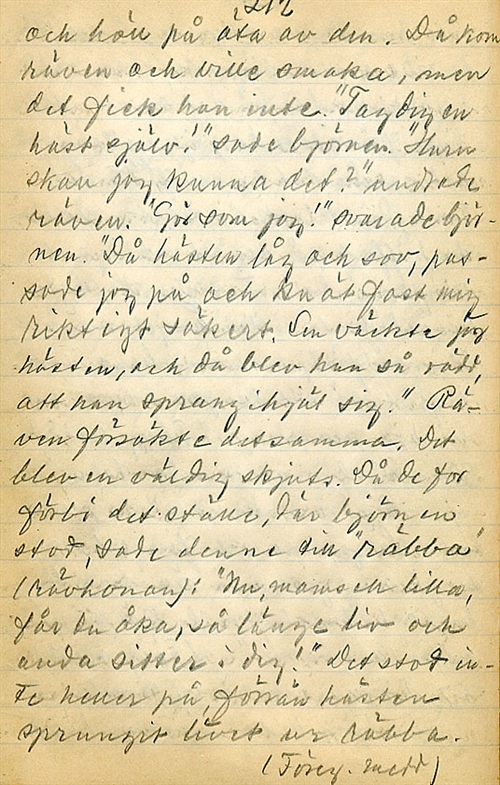 212
och höll på äta av den. Då kom
räven och ville smaka, men
det fick han inte. "Tag dig en
häst själv!" sade björnen. "Huru
skall jag kunna det?" undrade
räven. "Gör som jag!" svarade björ-
nen. "Då hästen låg och sov, pas-
sade jag på och knöt fast mig
riktigt säkert. Sen väckte jag
hästen, och då blev han så rädd,
att han sprang ihjäl sig." Rä-
ven försökte detsamma. Det
blev en väldig skjuts. Då de for
förbi det ställe, där björnen
stod, sade denne till "räbba"
(rävhonan): "Nu, mamsell lilla,
får du åka, så länge liv och
anda sitter i dig!" Det stod in-
te heller på, förrän hästen
sprungit livet ur räbba.
(Föreg. medd)